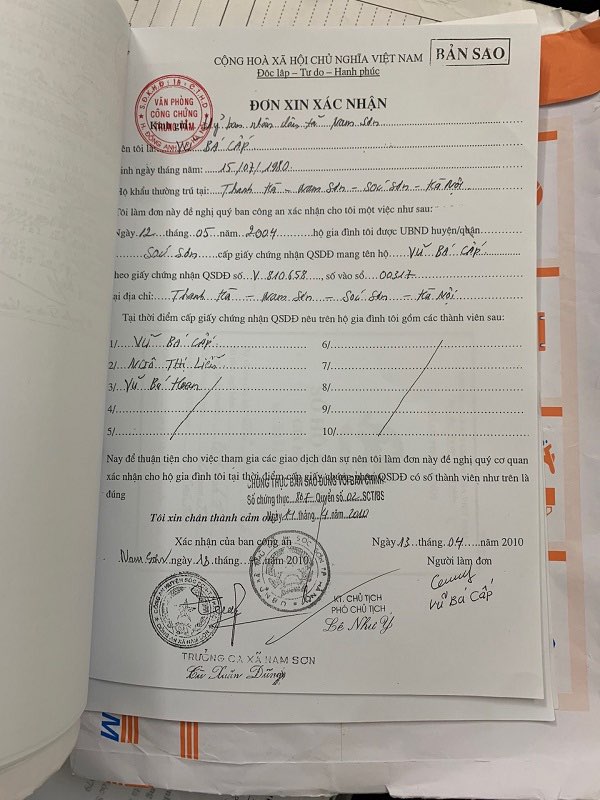 CỘNG HOÀ XÃ HỘI CHỦ NGHĨA VIỆT NAM
BẢN SAO
Độc lập – Tự do – Hạnh phúc
VĂN PHÒNG
CÔNG CHỨNG
TRUNG TÂM
ĐƠN XIN XÁC NHẬN
Kính gửi: Uỷ ban nhân dân xã Nam Sơn
tên tôi là: VŨ BÁ CẤP
inh ngày tháng năm: 15/07/1980
Hộ khẩu thường trú tại: Thanh Hà – Nam Sơn – Sóc Sơn – Hà Nội
Tôi làm đơn này đề nghị quý ban công an xác nhận cho tôi một việc như sau:
Ngày 12 tháng 05 năm 2004 hộ gia đình tôi được UBND huyện/quận
Sóc Sơn cấp giấy chứng nhận QSDĐ mang tên hộ VŨ BÁ CẤP
theo giấy chứng nhận QSDĐ số V 810658, số vào sổ 00317
tại địa chỉ: Thanh Hà – Nam Sơn – Sóc Sơn – Hà Nội
Tại thời điểm cấp giấy chứng nhận QSDĐ nêu trên hộ gia đình tôi gồm các thành viên sau:
1/ VŨ BÁ CẤP 6/
2/ NGÔ THỊ LIỄU 7/
3/ VŨ BÁ 8/
4/ 9/
5/ 10/
Nay để thuận tiện cho việc tham gia các giao dịch dân sự nên tôi làm đơn này đề nghị quý cơ quan
xác nhận cho hộ gia đình tôi tại thời điểm cấp giấy chứng nhận QSDĐ có số thành viên như trên là
đúng
CHỨNG THỰC BẢN SAO ĐÚNG VỚI BẢN CHÍNH
Số chứng thực 807 Quyển số 02 SCT/BS
Ngày tháng 4 2010
Tôi xin chân thành cảm ơn
Xác nhận của ban công an
Ngày 13 tháng 04 năm 2010
Nam Sơn, ngày 13 tháng năm 2010
Người làm đơn
VŨ BÁ CẤP
KT. CHỦ TỊCH
PHÓ CHỦ TỊCH
Lê Như Ý
TRƯỞNG CA XÃ NAM SƠN
Xuân Dũng